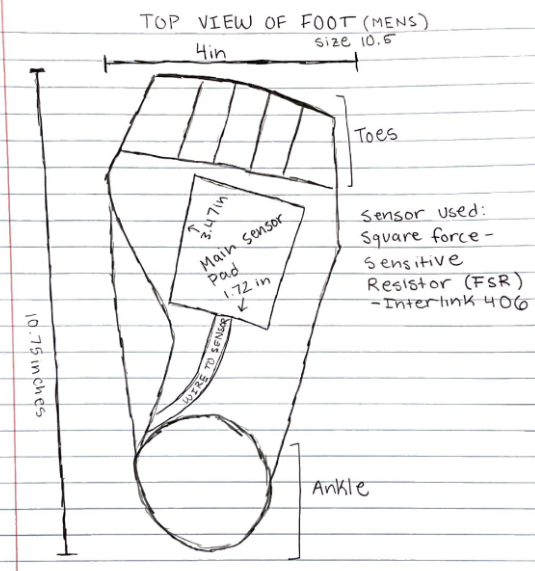 TOP VIEW OF FOOT (MENS)
size 10.5
4in
Toes
3.47in
Main Sensor
Pad
1.72 in
Sensor used:
Square force-
Sensitive
Resistor (FSR)
-Interlink 406
WIRE TO SENSOR
10.75 inches
Ankle